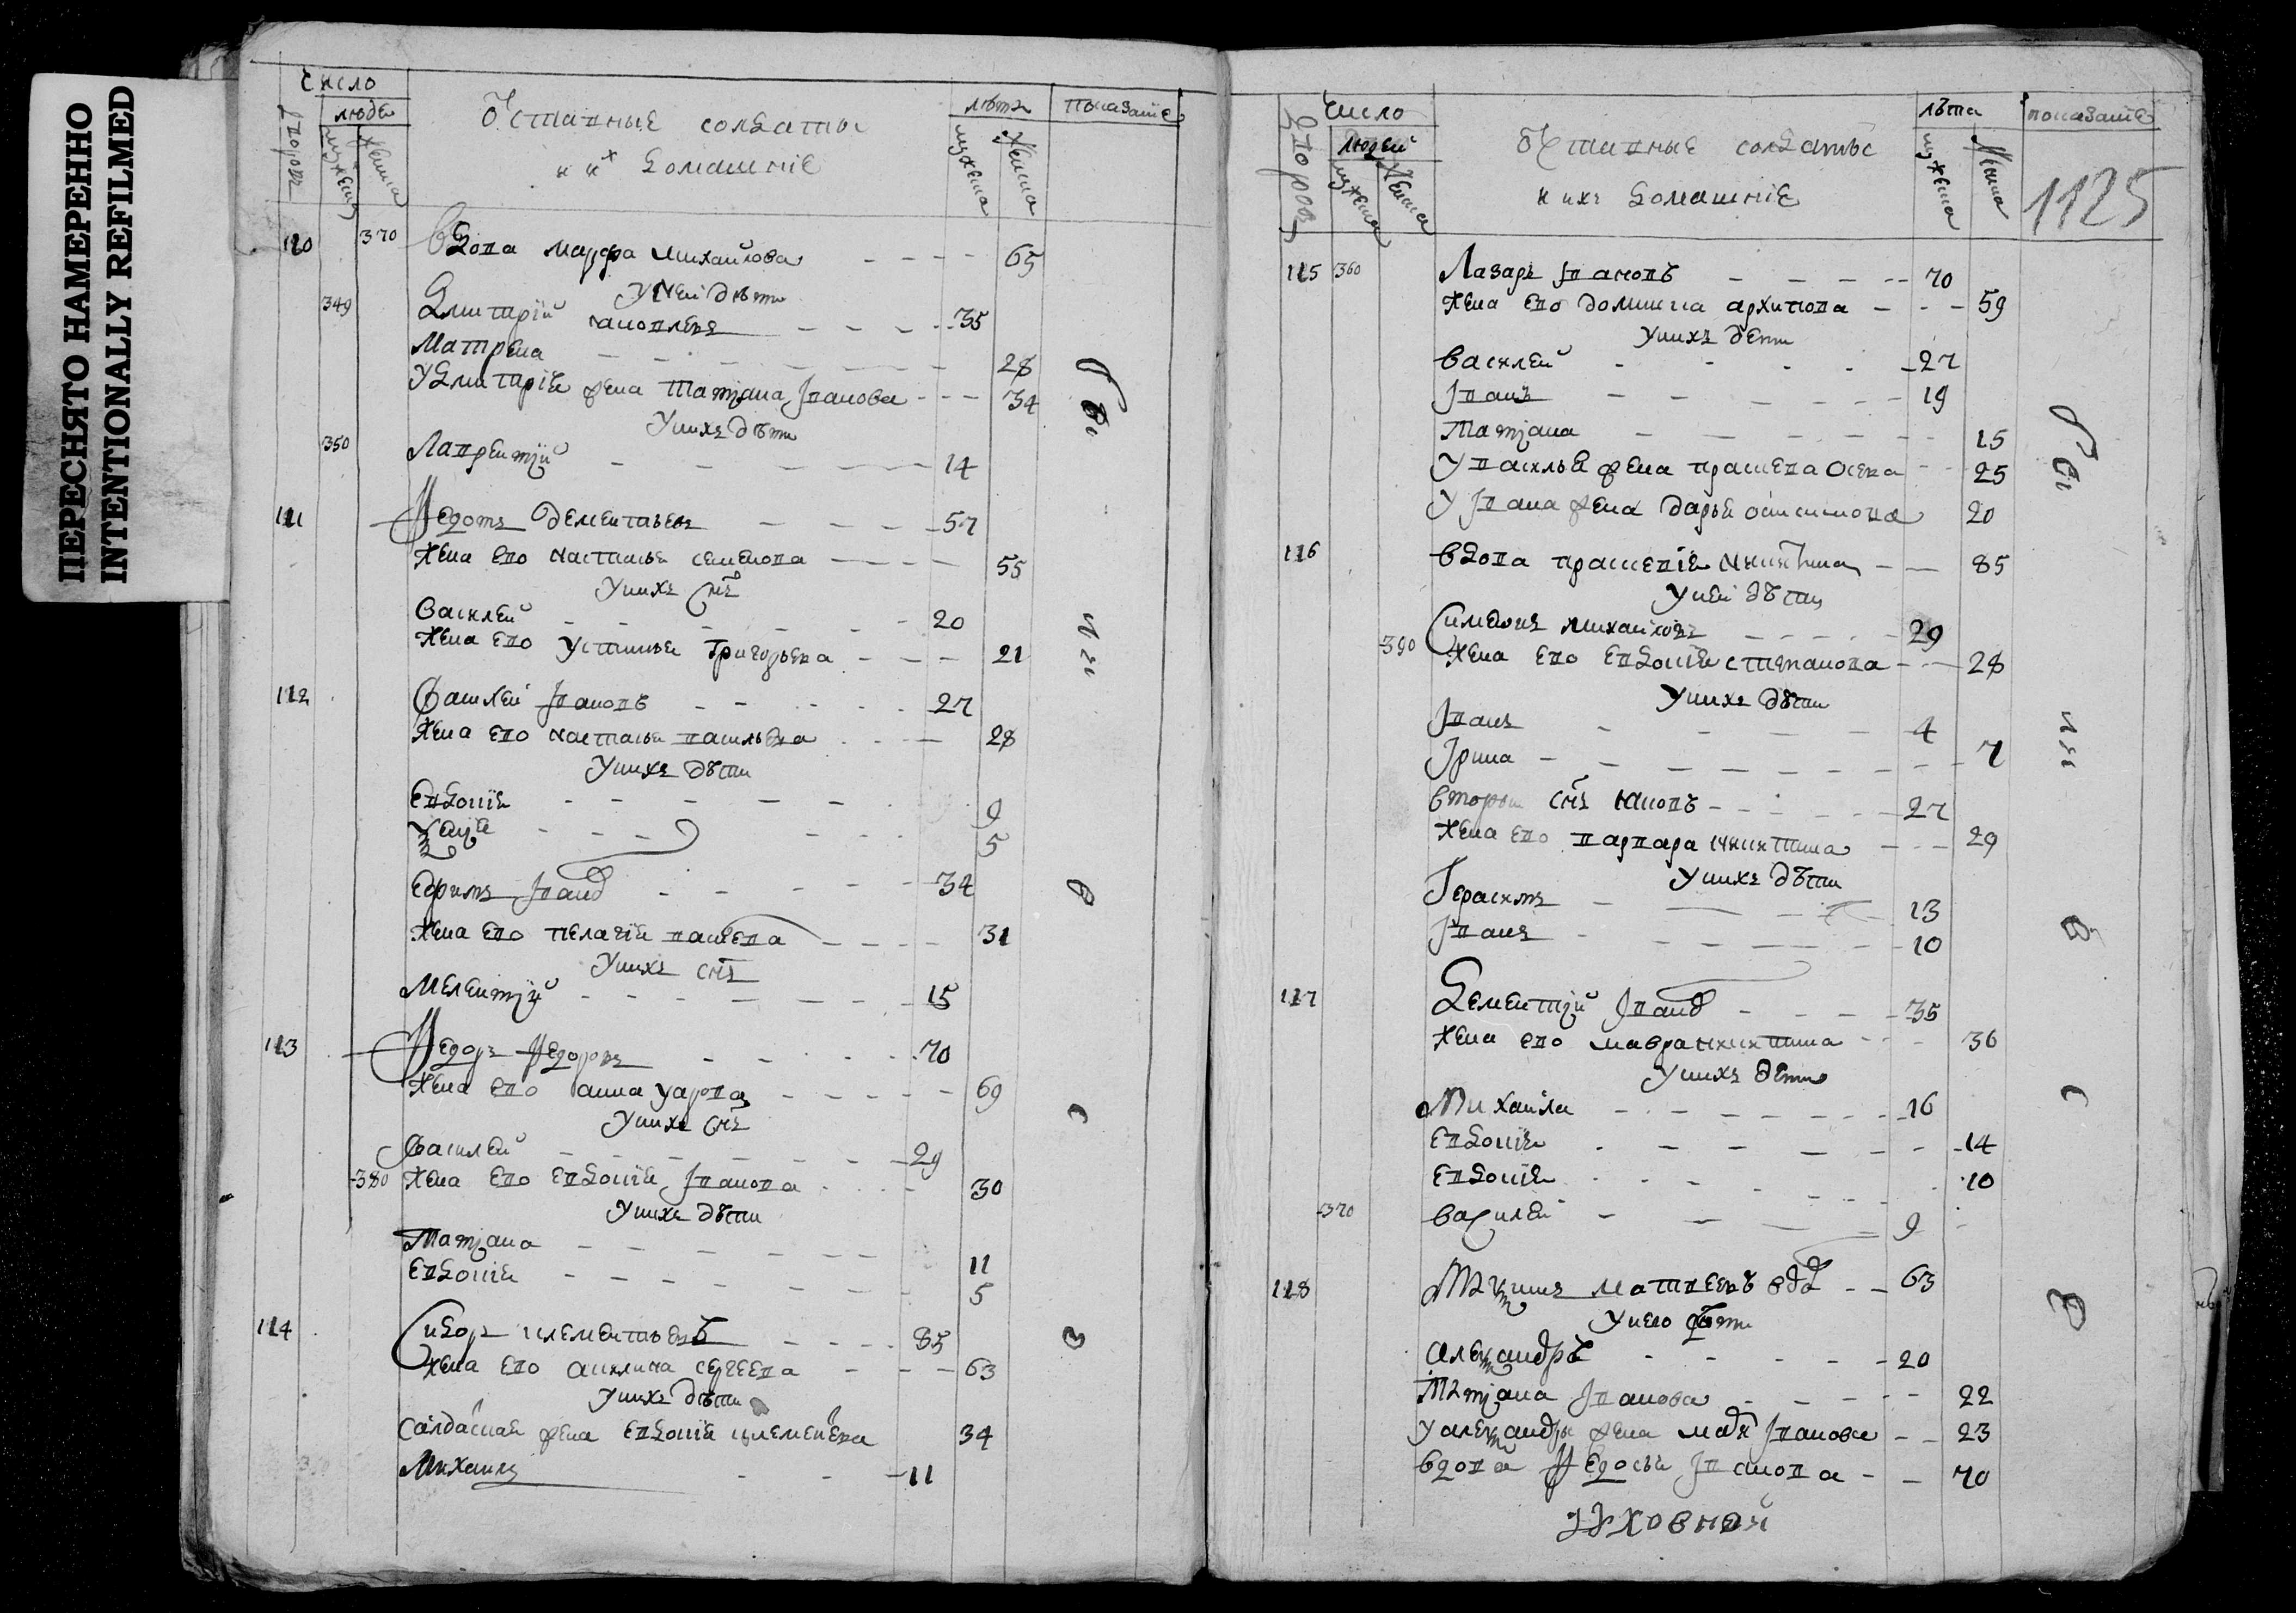 ПЕРЕСНЯТО НАМЕРЕННО
INTENTIONALLY REFILMED
Число
людей
дворовъ
мужеска
женска
Отставные солдаты
и их домашнiе
лѣта
мужеска
женска
показанiе
110 370 Вдова марфа михайлова 65
У неи дѣти
349 Дмитрiй яковлевъ 35
Матрена 28
У дмитрiя жена татiана Iванова 34
У нихъ дѣти
350 Лаврентiй 14
111 Федотъ дементьевъ 57
жена ево настасья семенова 55
У нихъ снъ
Василей 20
жена ево устинья григорьева 21
112 Василей Iвановъ 27
жена ево настасья васильева 28
У нихъ дѣти
Евдокiя 9
5
Ефимъ Iванов 34
жена ево пелагiя 31
У нихъ снъ
Мелентiй 15
113 Федоръ Федоровъ 70
жена ево анна уарова 69
У нихъ снъ
Василей 29
380 жена ево евдокiя Iванова 30
У нихъ дѣти
Татiана 11
Евдокiя 5
114 Сидоръ клементьевъ 85
жена ево акилина сергеева 63
У нихъ дѣти
Салдацкая жена евдокiя клементева 34
Михаилъ 11
Число
людей
дворовъ
мужеска
женска
Отставные солдаты
и ихъ домашнiе
лѣта
мужеска
женска
показанiе
1125
115 360 Лазарь Iвановъ 70
жена ево домника архипова 59
У нихъ дети
Василей 27
Iванъ 19
Татiана 15
У василья жена прасковя осева 25
У Iвана жена дарья онисимова 20
116 Вдова прасковiя никитина 85
У неи дѣти
Симеонъ михаиловъ 29
390 жена ево евдокiя степанова 28
У нихъ дѣти
Iванъ 4
Iрина 7
Вторы снъ яковъ 27
жена ево варвара никитина 29
У нихъ дѣти
Герасимъ 13
Iванъ 10
117 Дементiй Iванов 35
жена ево мавра никитина 36
У нихъ дети
Михаила 16
Евдокiя 14
Евдокiя 10
370 Василей 9
118 матвеевъ вдо 63
У него дѣти
Александръ 20
Татiана Iванова 22
У александры жена Iванова 23
Вдова Федосья Iванова 70
духовной